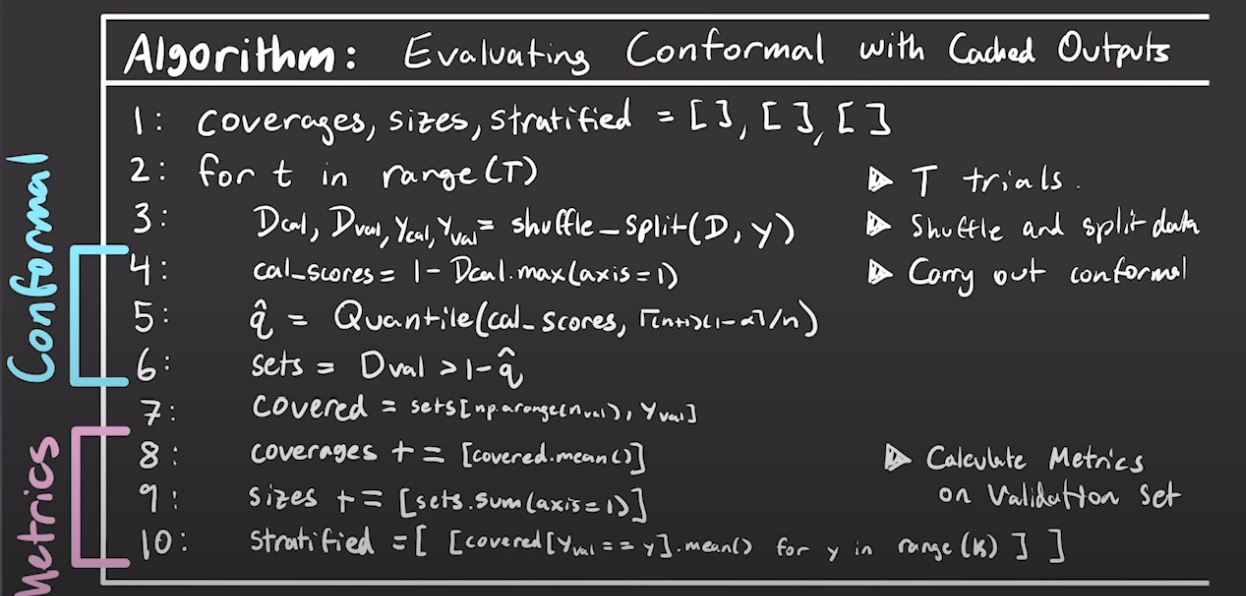 Algorithm: Evaluating Conformal with Cached Outputs
1: coverages, sizes, stratified = [ ], [ ], [ ]
2: for t in range(T) ▷ T trials.
3: Dcal, Dval, Ycal, Yval = shuffle_split(D, y) ▷ Shuffle and split data
4: cal_scores = 1 - Dcal.max(axis=1) ▷ Carry out conformal
5: q̂ = Quantile(cal_scores, ⌈(n+1)(1-α⌉/n)
6: sets = Dval > 1-q̂
7: covered = sets[np.arange(nval), Yval]
8: coverages += [covered.mean()] ▷ Calculate Metrics
on Validation Set
9: sizes += [sets.sum(axis=1)]
10: stratified = [ [covered[Yval == y].mean() for y in range(K) ] ]
Conformal
Metrics